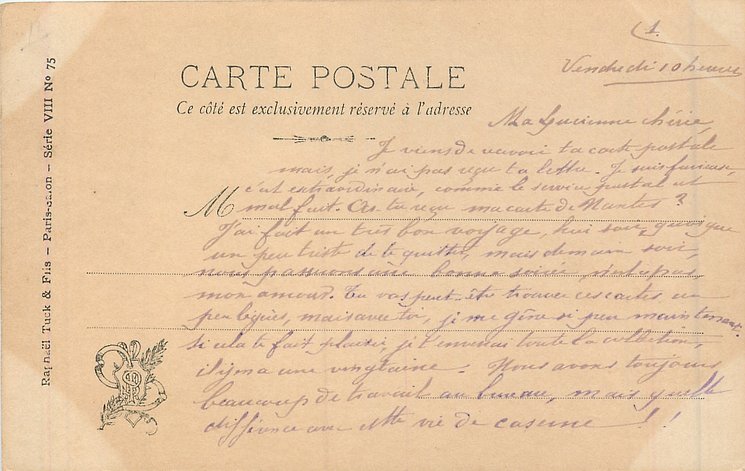 1.
Vendredi 10 heures
CARTE POSTALE
Ce côté est exclusivement réservé à l'adresse
Ma Lucienne chérie,
Je viens de recevoir ta carte postale
mais, je n'ai pas reçu ta lettre. Je suis furieuse,
c'est extraordinaire, comme le service postal est
M
mal fait. As tu reçu ma carte de Nantes ?
J'ai fait un très bon voyage, hier soir, quoique
un peu triste de te quitter, mais demain soir,
nous passerons une bonne soirée, n'est-ce pas
mon amour. Tu vas peut-être trouver ces cartes un
peu légères, mais avec toi, je me gêne si peu maintenant.
Si cela te fait plaisir, je t'enverrai toute la collection,
il y en a une vingtaine. Nous avons toujours
beaucoup de travail au bureau, mais quelle
différence avec cette vie de caserne !!
Raphaël Tuck & Fils – Paris-Salon – Série VIII Nº 75